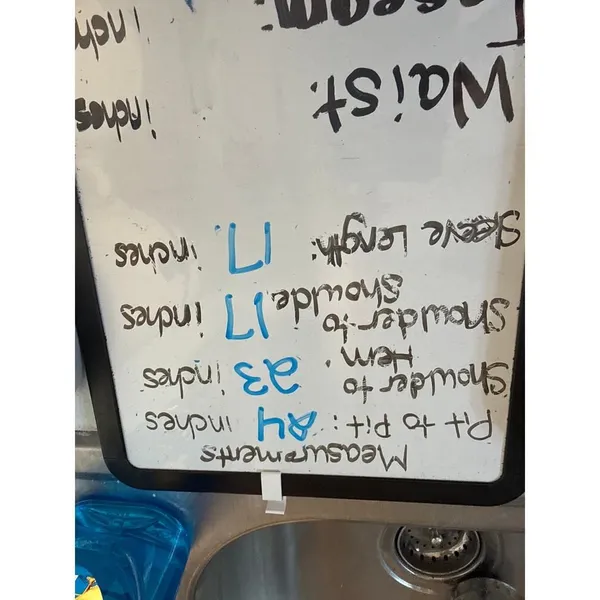 Measurements
Pit to Pit: 24 inches
Shoulder to 23 inches
Hem.
Shoulder to 17 inches
Shoulde
Sleeve Length: 17. inches
Waist: inches
Inseam: inch